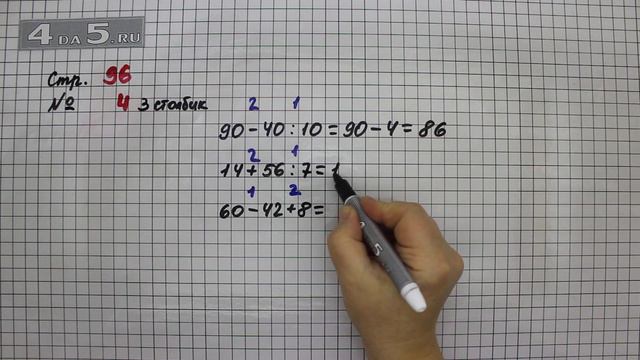 4 DA 5.RU
Стр. 96
№ 4 3 столбик
2 1
90 - 40 : 10 = 90 - 4 = 86
2 1
14 + 56 : 7 = 1
1 2
60 - 42 + 8 =